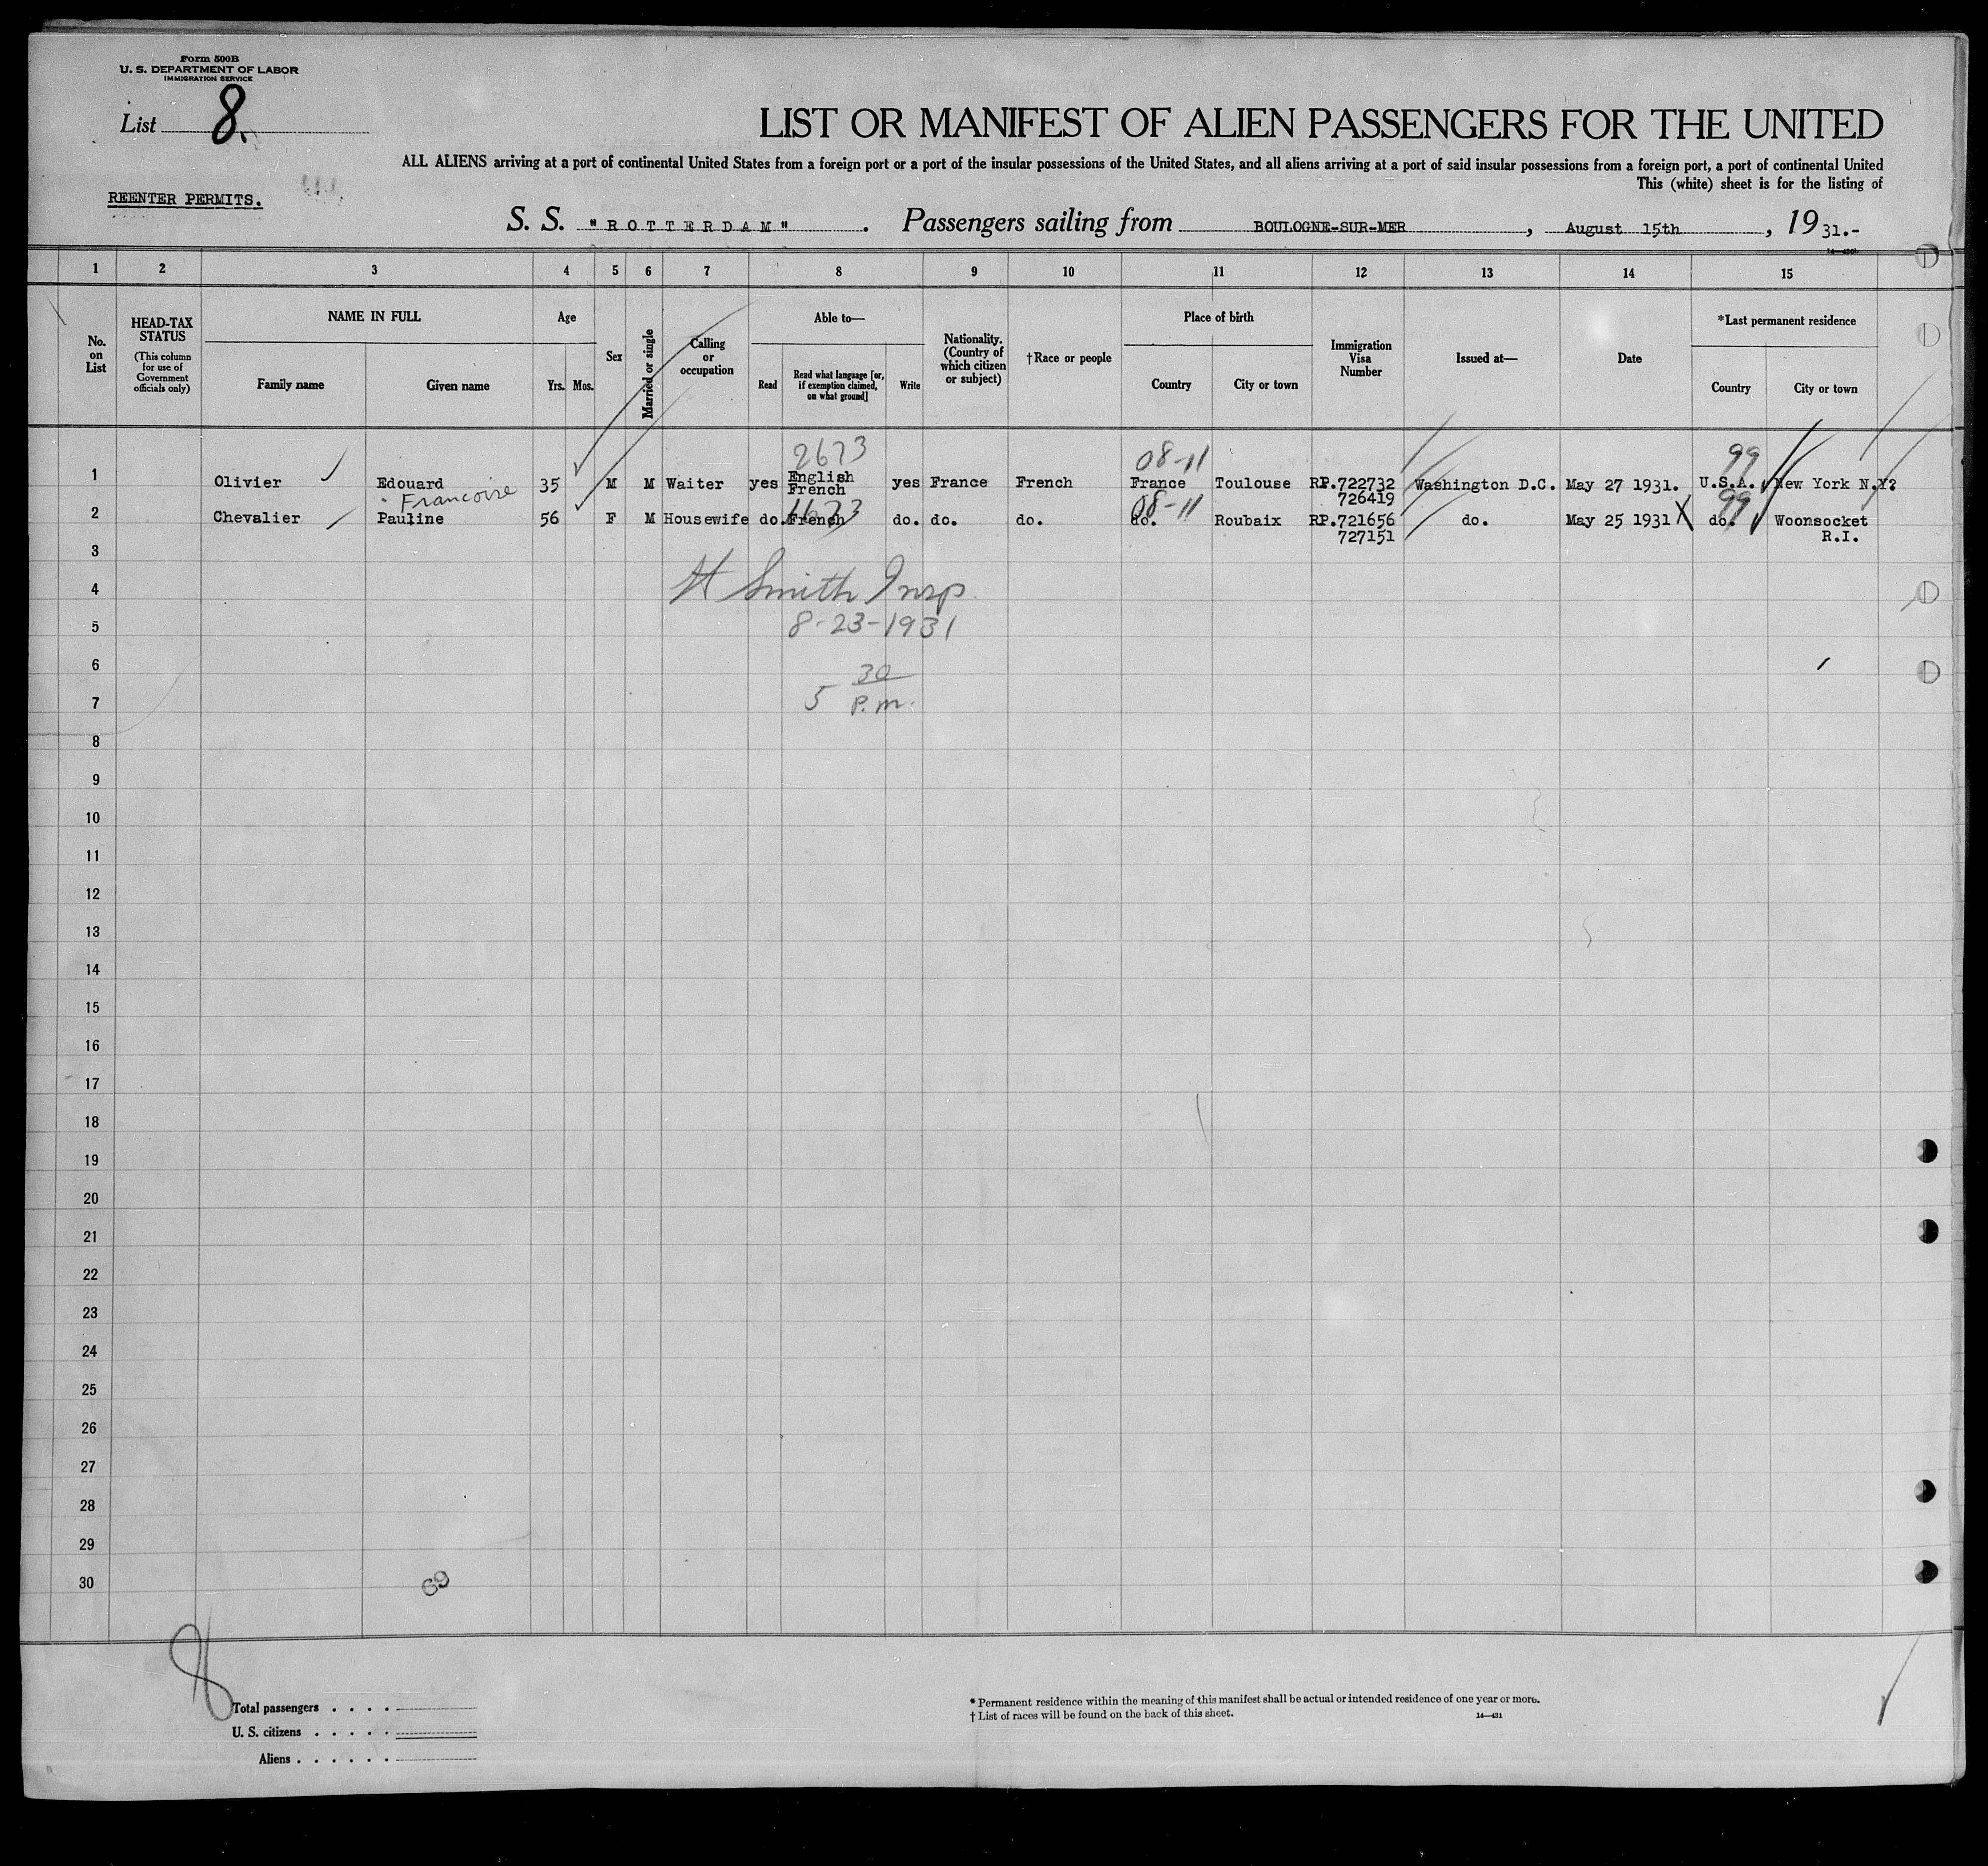 Form 500B
U. S. DEPARTMENT OF LABOR
IMMIGRATION SERVICE
List 8.
LIST OR MANIFEST OF ALIEN PASSENGERS FOR THE UNITED
ALL ALIENS arriving at a port of continental United States from a foreign port or a port of the insular possessions of the United States, and all aliens arriving at a port of said insular possessions from a foreign port, a port of continental United
This (white) sheet is for the listing of
REENTER PERMITS.
S. S. "ROTTERDAM". Passengers sailing from BOULOGNE-SUR-MER, August 15th, 1931.-
1 2 3 4 5 6 7 8 9 10 11 12 13 14 15
No. on List
HEAD-TAX STATUS
(This column for use of Government officials only)
NAME IN FULL
Family name Given name
Age
Yrs. Mos.
Sex
Married or single
Calling or occupation
Able to—
Read
Read what language [or, if exemption claimed, on what ground]
Write
Nationality. (Country of which citizen or subject)
†Race or people
Place of birth
Country City or town
Immigration Visa Number
Issued at—
Date
*Last permanent residence
Country City or town
2673 08-11 99
1 Olivier Edouard 35 M M Waiter yes English French yes France French France Toulouse RP.722732 726419 Washington D.C. May 27 1931. U.S.A. New York N.Y.
Francoise
08-11 99
2 Chevalier Pauline 56 F M Housewife do. French do. do. do. do. Roubaix RP.721656 727151 do. May 25 1931 X do. Woonsocket R.I.
3
4
H Smith Insp.
5
8-23-1931
6
7
5 30 P.m.
8
9
10
11
12
13
14
15
16
17
18
19
20
21
22
23
24
25
26
27
28
29
30
69
8
Total passengers
U. S. citizens
Aliens
* Permanent residence within the meaning of this manifest shall be actual or intended residence of one year or more.
† List of races will be found on the back of this sheet.
14—431